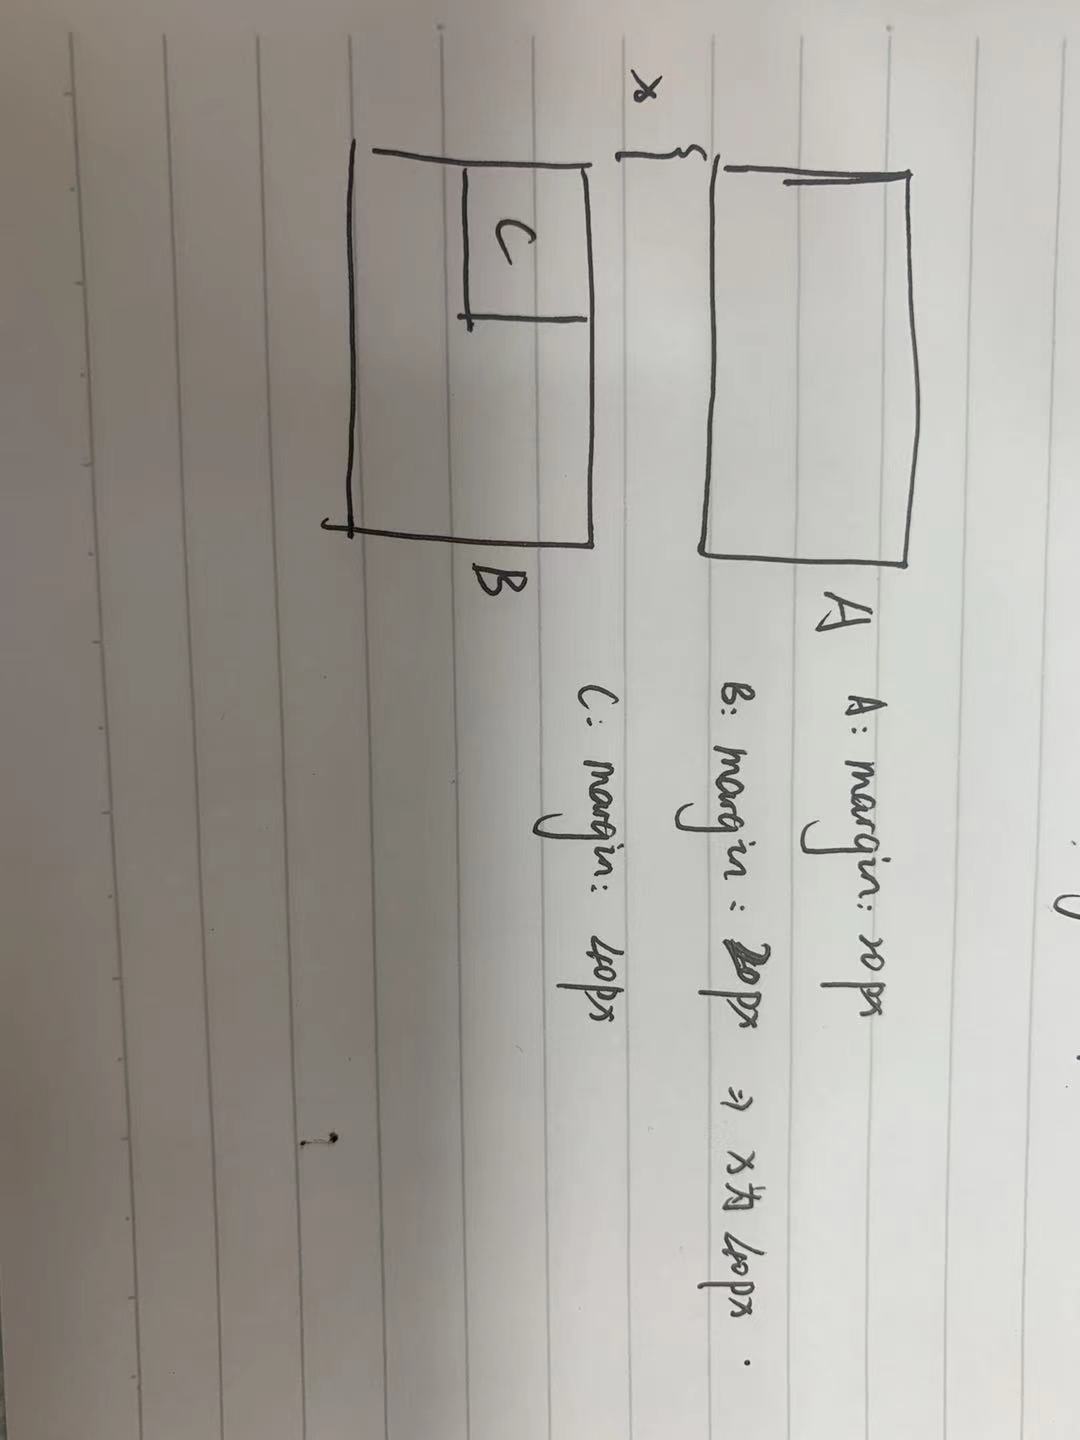 A
A: margin: 20px
x
B: margin: 20px ⇒ x为40px.
C: margin: 40px
C
B